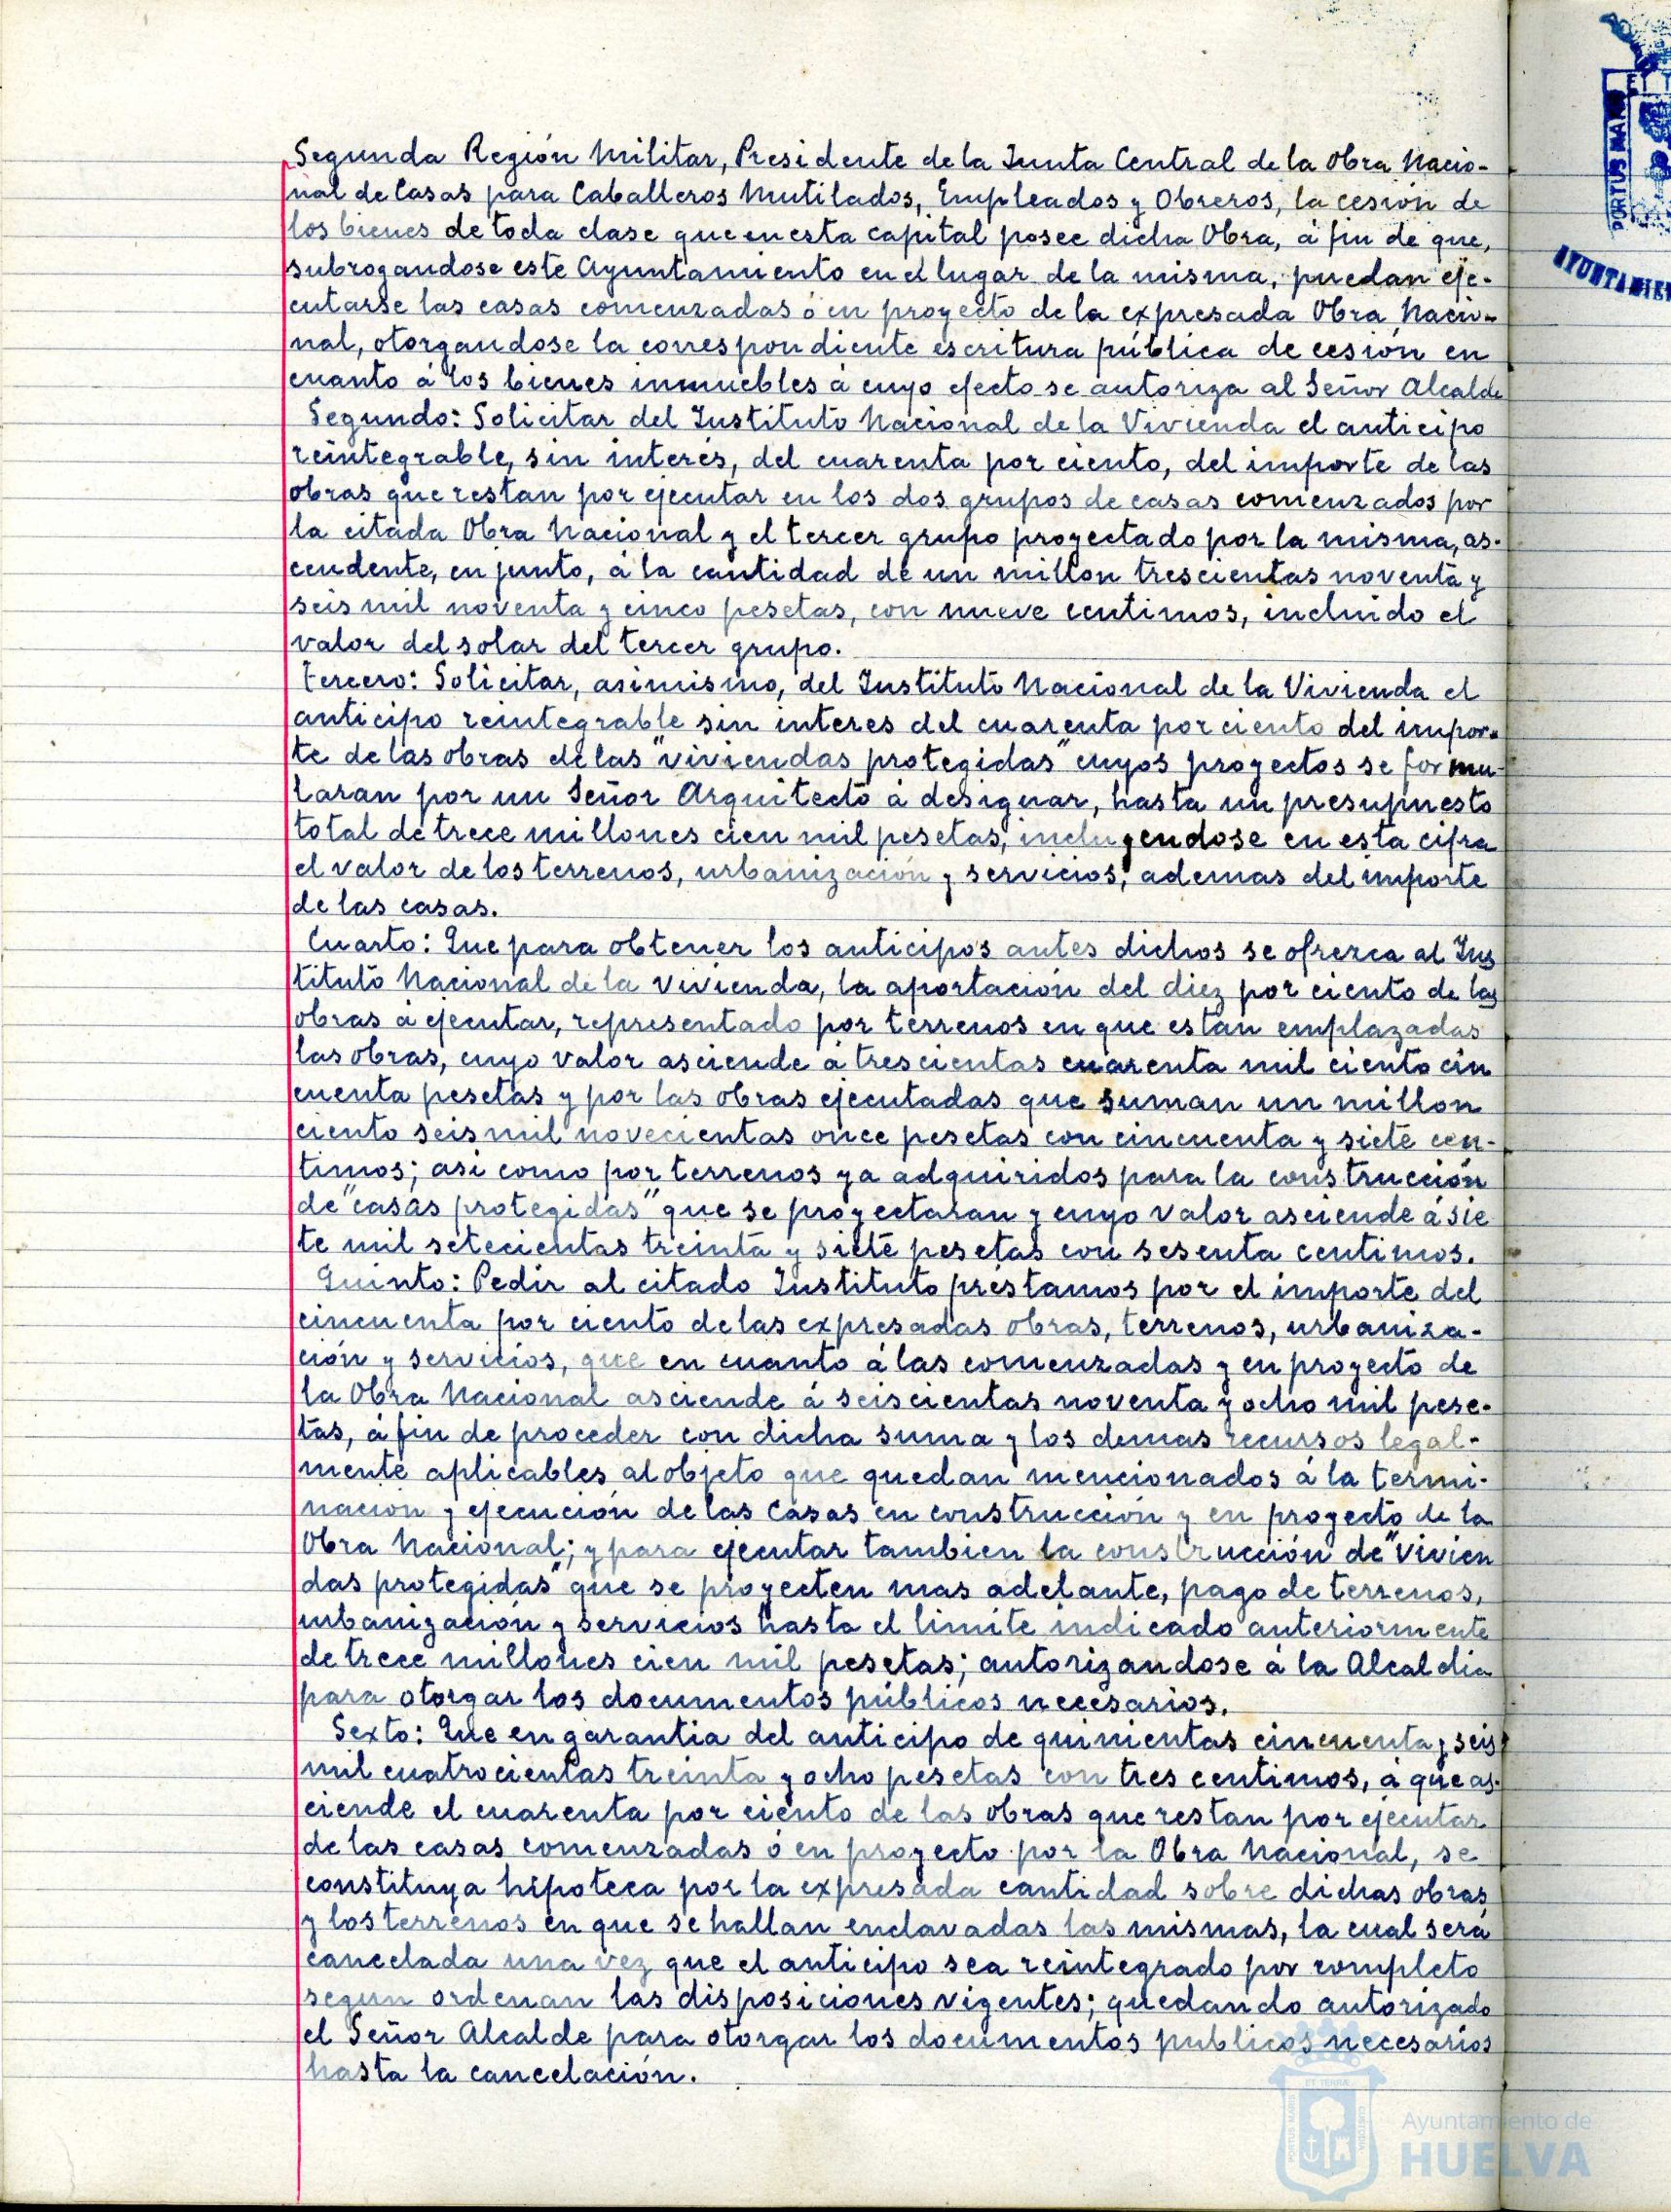 Segunda Región Militar, Presidente de la Junta Central de la Obra Nacio-
nal de Casas para Caballeros Mutilados, Empleados y Obreros, la cesión de
los bienes de toda clase que en esta capital posee dicha Obra, á fin de que,
subrogandose este Ayuntamiento en el lugar de la misma, puedan eje-
cutarse las casas comenzadas ó en proyecto de la expresada Obra Nacio-
nal, otorgandose la correspondiente escritura pública de cesión en
cuanto á los bienes inmuebles á cuyo efecto se autoriza al Señor Alcalde
Segundo: Solicitar del Instituto Nacional de la Vivienda el anticipo
reintegrable, sin interés, del cuarenta por ciento, del importe de las
obras que restan por ejecutar en los dos grupos de casas comenzados por
la citada Obra Nacional y el tercer grupo proyectado por la misma, as-
cendente, en junto, á la cantidad de un millon trescientas noventa y
seis mil noventa y cinco pesetas, con nueve centimos, incluido el
valor del solar del tercer grupo.
Tercero: Solicitar, asimismo, del Instituto Nacional de la Vivienda el
anticipo reintegrable sin interes del cuarenta por ciento del impor-
te de las obras de las "viviendas protegidas" cuyos proyectos se formu-
laran por un Señor Arquitecto á designar, hasta un presupuesto
total de trece millones cien mil pesetas, incluyendose en esta cifra
el valor de los terrenos, urbanización y servicios, ademas del importe
de las casas.
Cuarto: Que para obtener los anticipos antes dichos se ofrezca al Ins
tituto Nacional de la Vivienda, la aportación del diez por ciento de las
obras á ejecutar, representado por terrenos en que estan emplazadas
las obras, cuyo valor asciende á trescientas cuarenta mil ciento cin
cuenta pesetas y por las obras ejecutadas que suman un millon
ciento seis mil novecientas once pesetas con cincuenta y siete cen-
timos; asi como por terrenos ya adquiridos para la construcción
de "casas protegidas" que se proyectaran y cuyo valor asciende á sie
te mil setecientas treinta y siete pesetas con sesenta centimos.
Quinto: Pedir al citado Instituto préstamos por el importe del
cincuenta por ciento de las expresadas obras, terrenos, urbaniza-
ción y servicios, que en cuanto á las comenzadas y en proyecto de
la Obra Nacional asciende á seiscientas noventa y ocho mil pese-
tas, á fin de proceder con dicha suma y los demas recursos legal-
mente aplicables al objeto que quedan mencionados á la termi-
nación y ejecución de las Casas en construcción y en proyecto de la
Obra Nacional; y para ejecutar tambien la construcción de "vivien
das protegidas" que se proyecten mas adelante, pago de terrenos,
urbanización y servicios hasta el limite indicado anteriormente
de trece millones cien mil pesetas; autorizandose á la Alcaldia
para otorgar los documentos públicos necesarios.
Sexto: Que en garantia del anticipo de quinientas cincuenta y seis
mil cuatrocientas treinta y ocho pesetas con tres centimos, á que as-
ciende el cuarenta por ciento de las obras que restan por ejecutar
de las casas comenzadas ó en proyecto por la Obra Nacional, se
constituya hipoteca por la expresada cantidad sobre dichas obras
y los terrenos en que se hallan enclavadas las mismas, la cual será
cancelada una vez que el anticipo sea reintegrado por completo
segun ordenan las disposiciones vigentes; quedando autorizado
el Señor Alcalde para otorgar los documentos publicos necesarios
hasta la cancelación.
PORTUS MARIS
AYUNTAMIEN
Ayuntamiento de
HUELVA